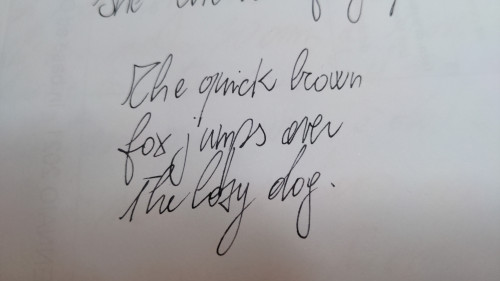 The quick brown
fox jumps over
the lazy dog.